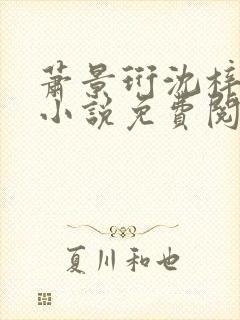 萧景珩沈梓
小说免費閱
夏川和也